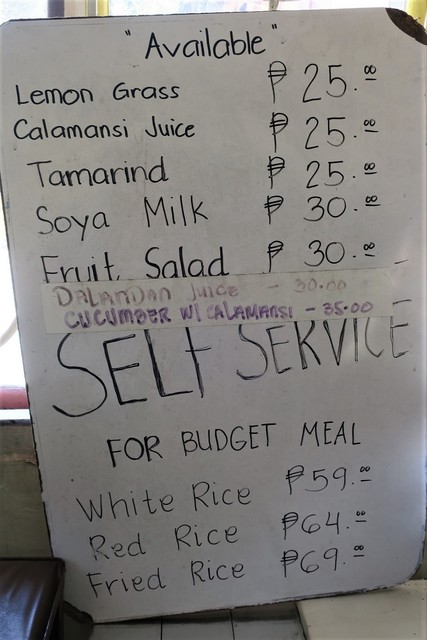 "Available"
Lemon Grass ₱ 25.00
Calamansi Juice ₱ 25.00
Tamarind ₱ 25.00
Soya Milk ₱ 30.00
Fruit Salad ₱ 30.00
DALANDAN JUICE - 30.00
CUCUMBER W/ CALAMANSI - 35.00
SELF SERVICE
FOR BUDGET MEAL
White Rice ₱59.00
Red Rice ₱64.00
Fried Rice ₱69.00